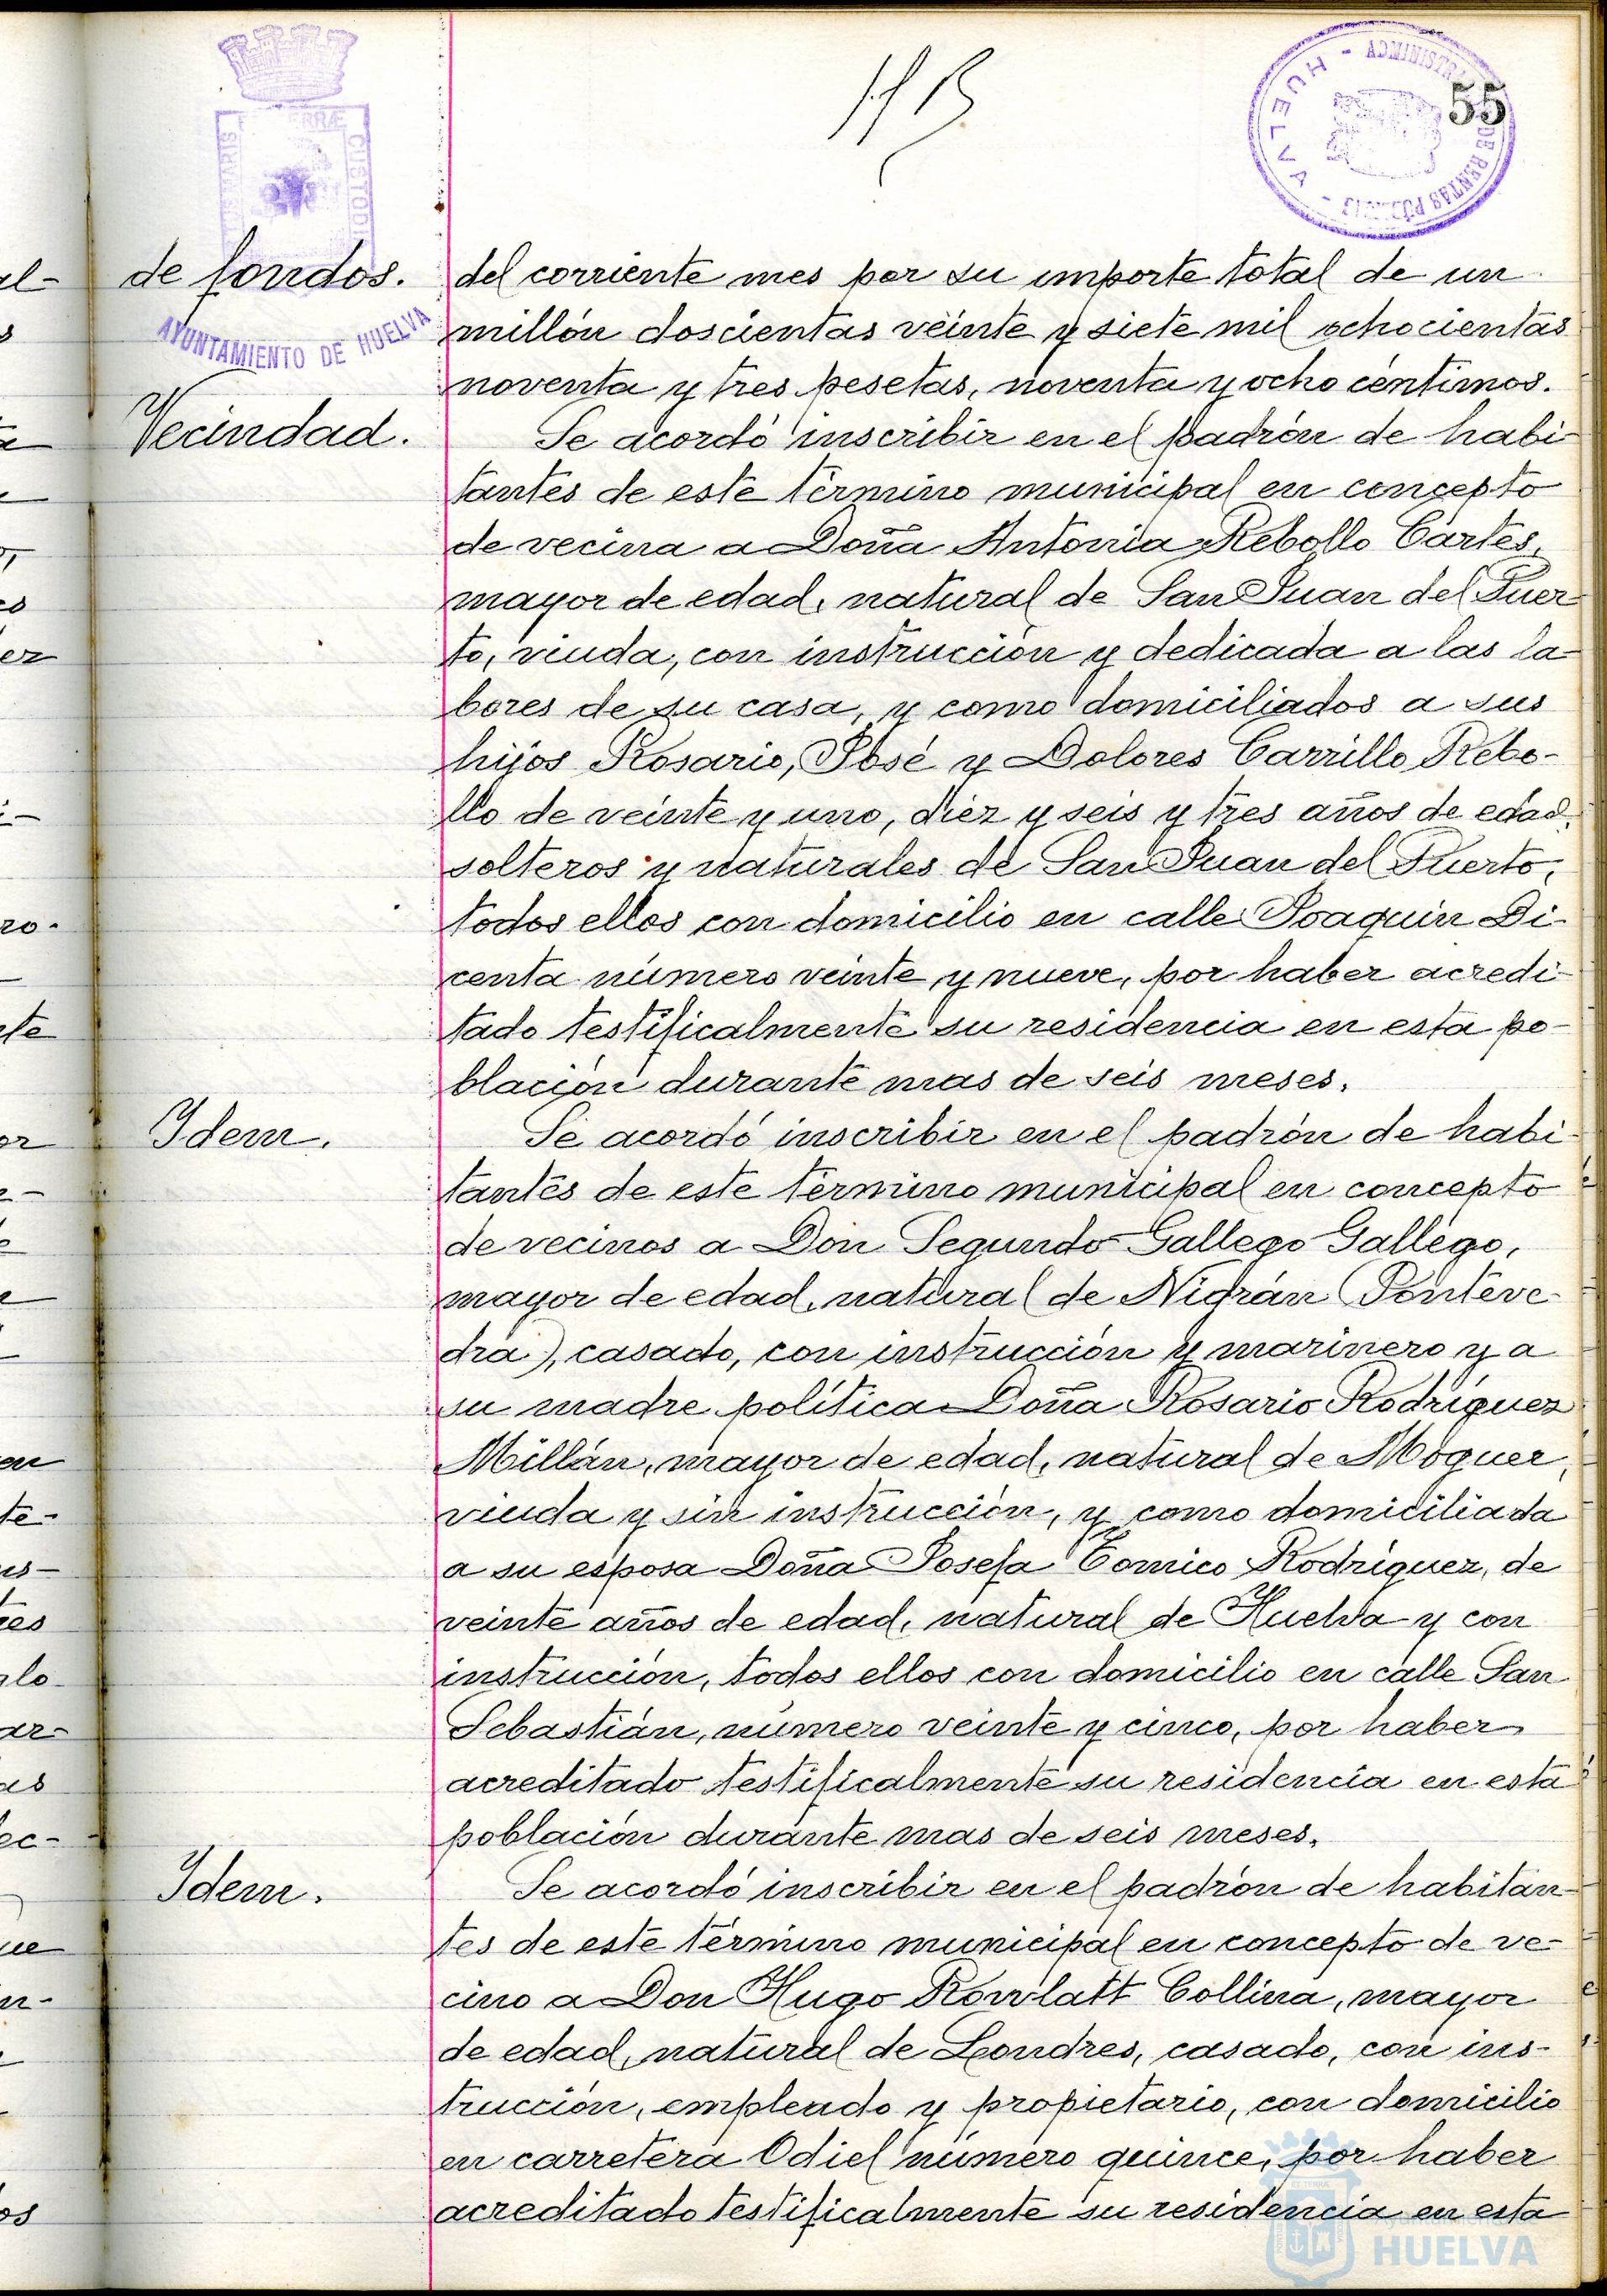 55
ADMINISTRA DE RENTAS PÚBLICAS - HUELVA -
CUSTODI
AYUNTAMIENTO DE HUELVA
de fondos.
del corriente mes por su importe total de un
millón doscientas veinte y siete mil ochocientas
noventa y tres pesetas, noventa y ocho céntimos.
Vecindad.
Se acordó inscribir en el padrón de habi-
tantes de este término municipal en concepto
de vecina a Doña Antonia Rebollo Cartes,
mayor de edad, natural de San Juan del Puer-
to, viuda, con instrucción y dedicada a las la-
bores de su casa, y como domiciliados a sus
hijos Rosario, José y Dolores Carrillo Rebo-
llo de veinte y uno, diez y seis y tres años de edad,
solteros y naturales de San Juan del Puerto,
todos ellos con domicilio en calle Joaquin Di-
centa número veinte y nueve, por haber acredi-
tado testificalmente su residencia en esta po-
blación durante mas de seis meses.
Idem.
Se acordó inscribir en el padrón de habi-
tantes de este término municipal en concepto
de vecinos a Don Segundo Gallego Gallego,
mayor de edad, natural de Nigrán (Ponteve-
dra), casado, con instrucción y marinero y a
su madre política Doña Rosario Rodríguez
Millán, mayor de edad, natural de Moguer,
viuda y sin instrucción, y como domiciliada
a su esposa Doña Josefa Comico Rodríguez, de
veinte años de edad, natural de Huelva y con
instrucción, todos ellos con domicilio en calle San
Sebastián, número veinte y cinco, por haber
acreditado testificalmente su residencia en esta
población durante mas de seis meses.
Idem.
Se acordó inscribir en el padrón de habitan-
tes de este término municipal en concepto de ve-
cino a Don Hugo Rowlatt Collina, mayor
de edad, natural de Londres, casado, con ins-
trucción, empleado y propietario, con domicilio
en carretera Odiel número quince, por haber
acreditado testificalmente su residencia en esta
HUELVA